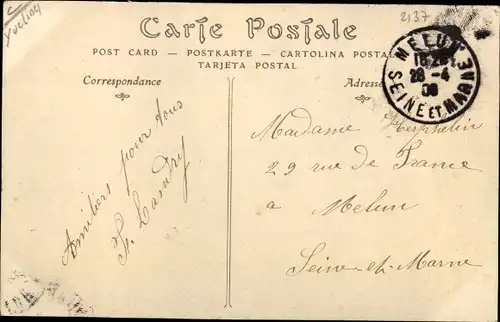 2137
Carte Postale
POST CARD — POSTKARTE — CARTOLINA POSTALE
TARJETA POSTAL
Correspondance
Adresse
MELUN
28-4
SEINE ET MARNE
Amitiers pour tous
Landry
Madame Herphelin
29 rue de France
a Melun
Seine-et-Marne